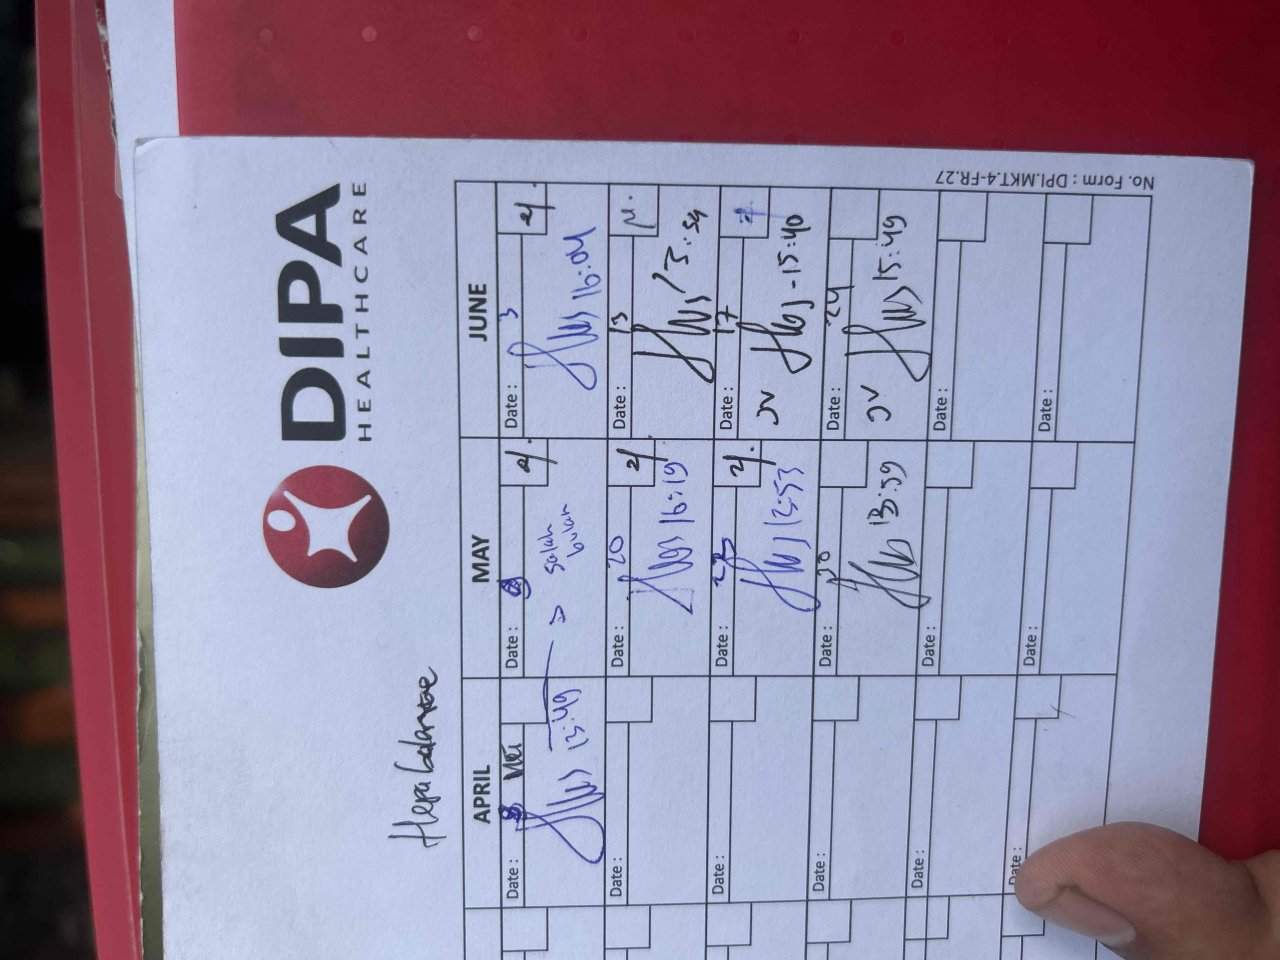 DIPA
HEALTHCARE
Hepabalance
APRIL MAY JUNE
Date : 8 Mei
13:49
Date : 8
salah
bulan
Date : 3
16:04
Date :
Date : 20
16:19
Date : 13
13:54
Date :
Date :
13:53
Date : 17
JV
15:40
Date :
Date :
13:59
Date : 24
JV
15:49
Date :
Date :
Date :
Date :
Date :
Date :
No. Form : DPI.MKT.4-FR.27